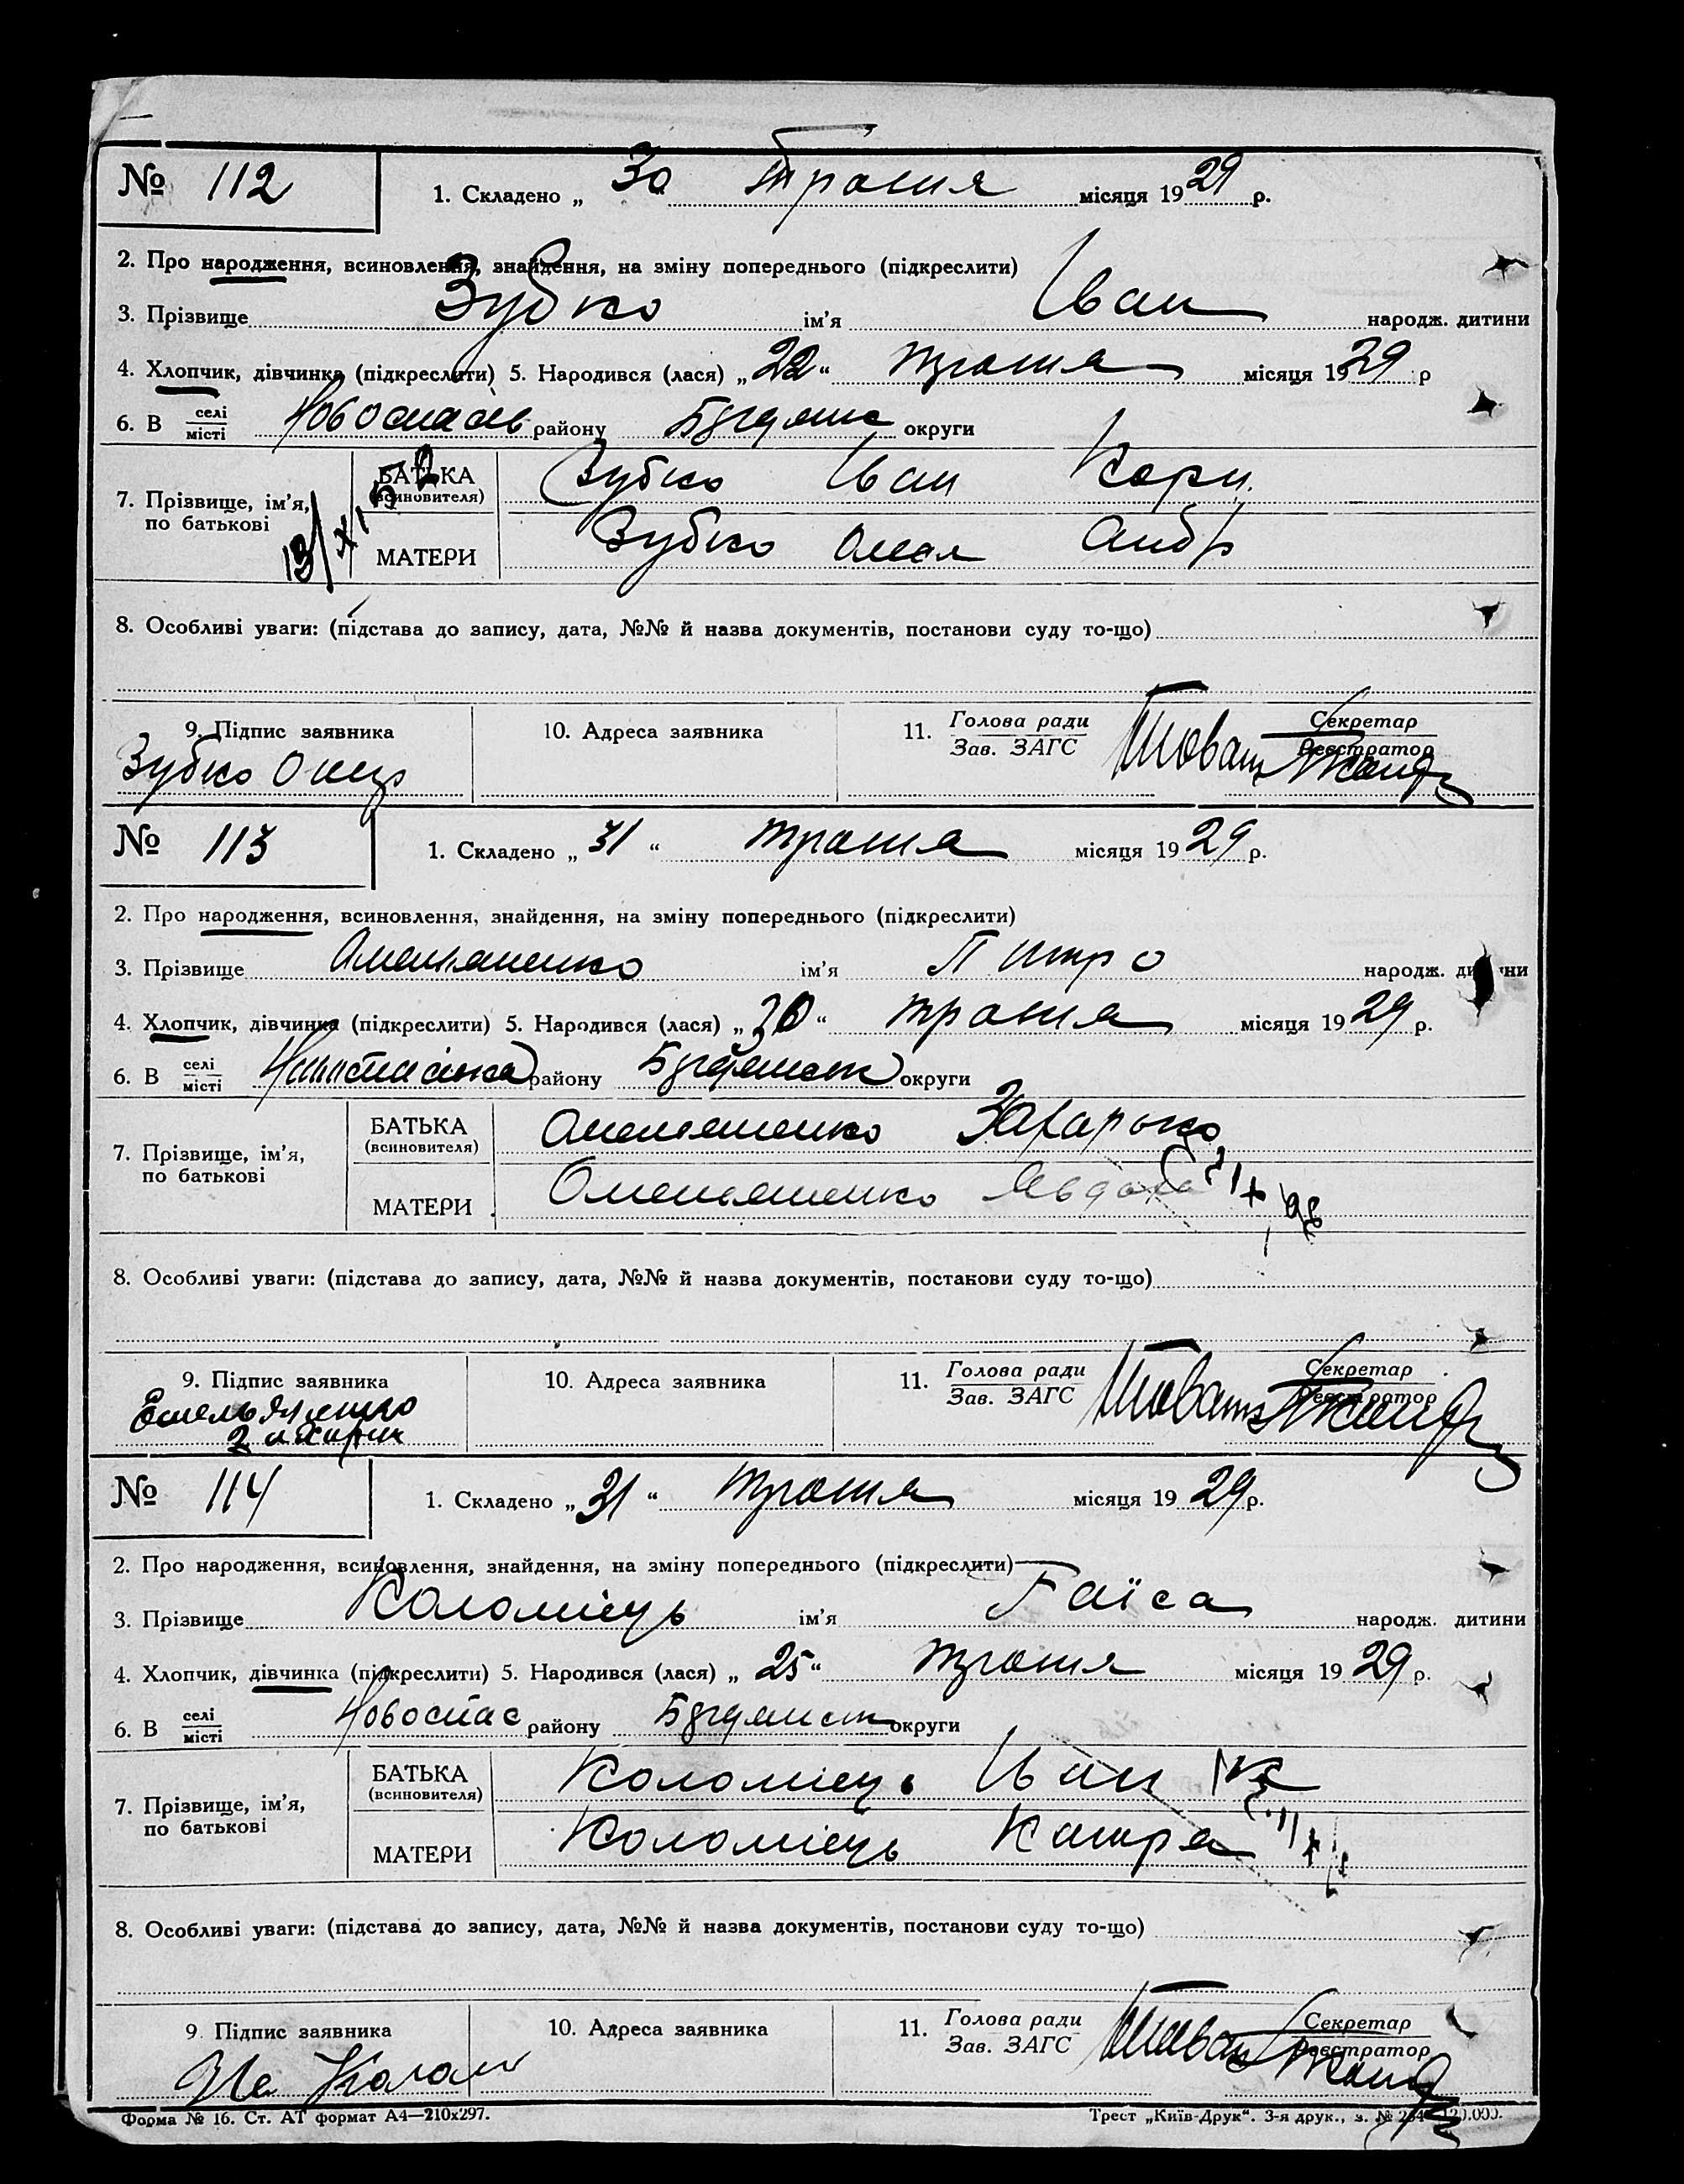 № 112 1. Складено „ 30 травня місяця 1929 р.
2. Про народження, всиновлення, знайдення, на зміну попереднього (підкреслити)
3. Прізвище Зубко ім'я Іван народж. дитини
4. Хлопчик, дівчинка (підкреслити) 5. Народився (лася) „ 22 “ травня місяця 1929 р
6. В селі місті району округи
7. Прізвище, ім'я, по батькові
БАТЬКА (всиновителя) Зубко Іван
МАТЕРИ Зубко
8. Особливі уваги: (підстава до запису, дата, №№ й назва документів, постанови суду то-що)
9. Підпис заявника 10. Адреса заявника 11. Голова ради Зав. ЗАГС Секретар Реєстратор
Зубко
№ 113 1. Складено „ 31 “ травня місяця 1929 р.
2. Про народження, всиновлення, знайдення, на зміну попереднього (підкреслити)
3. Прізвище Омельяненко ім'я Питро народж. дитини
4. Хлопчик, дівчинка (підкреслити) 5. Народився (лася) „ 30 “ травня місяця 1929 р.
6. В селі місті району округи
7. Прізвище, ім'я, по батькові
БАТЬКА (всиновителя) Омельяненко Захарько
МАТЕРИ Омельяненко Явдоха
8. Особливі уваги: (підстава до запису, дата, №№ й назва документів, постанови суду то-що)
9. Підпис заявника 10. Адреса заявника 11. Голова ради Зав. ЗАГС Секретар Реєстратор
Емельяненко
№ 114 1. Складено „ 31 “ травня місяця 1929 р.
2. Про народження, всиновлення, знайдення, на зміну попереднього (підкреслити)
3. Прізвище Коломієць ім'я Раїса народж. дитини
4. Хлопчик, дівчинка (підкреслити) 5. Народився (лася) „ 25 “ травня місяця 1929 р.
6. В селі місті Новоспас району округи
7. Прізвище, ім'я, по батькові
БАТЬКА (всиновителя) Коломієць Іван
МАТЕРИ Коломієць Катря
8. Особливі уваги: (підстава до запису, дата, №№ й назва документів, постанови суду то-що)
9. Підпис заявника 10. Адреса заявника 11. Голова ради Зав. ЗАГС Секретар Реєстратор
Форма № 16. Ст. АТ формат А4—210х297. Трест „Київ-Друк“. 3-я друк., з. №